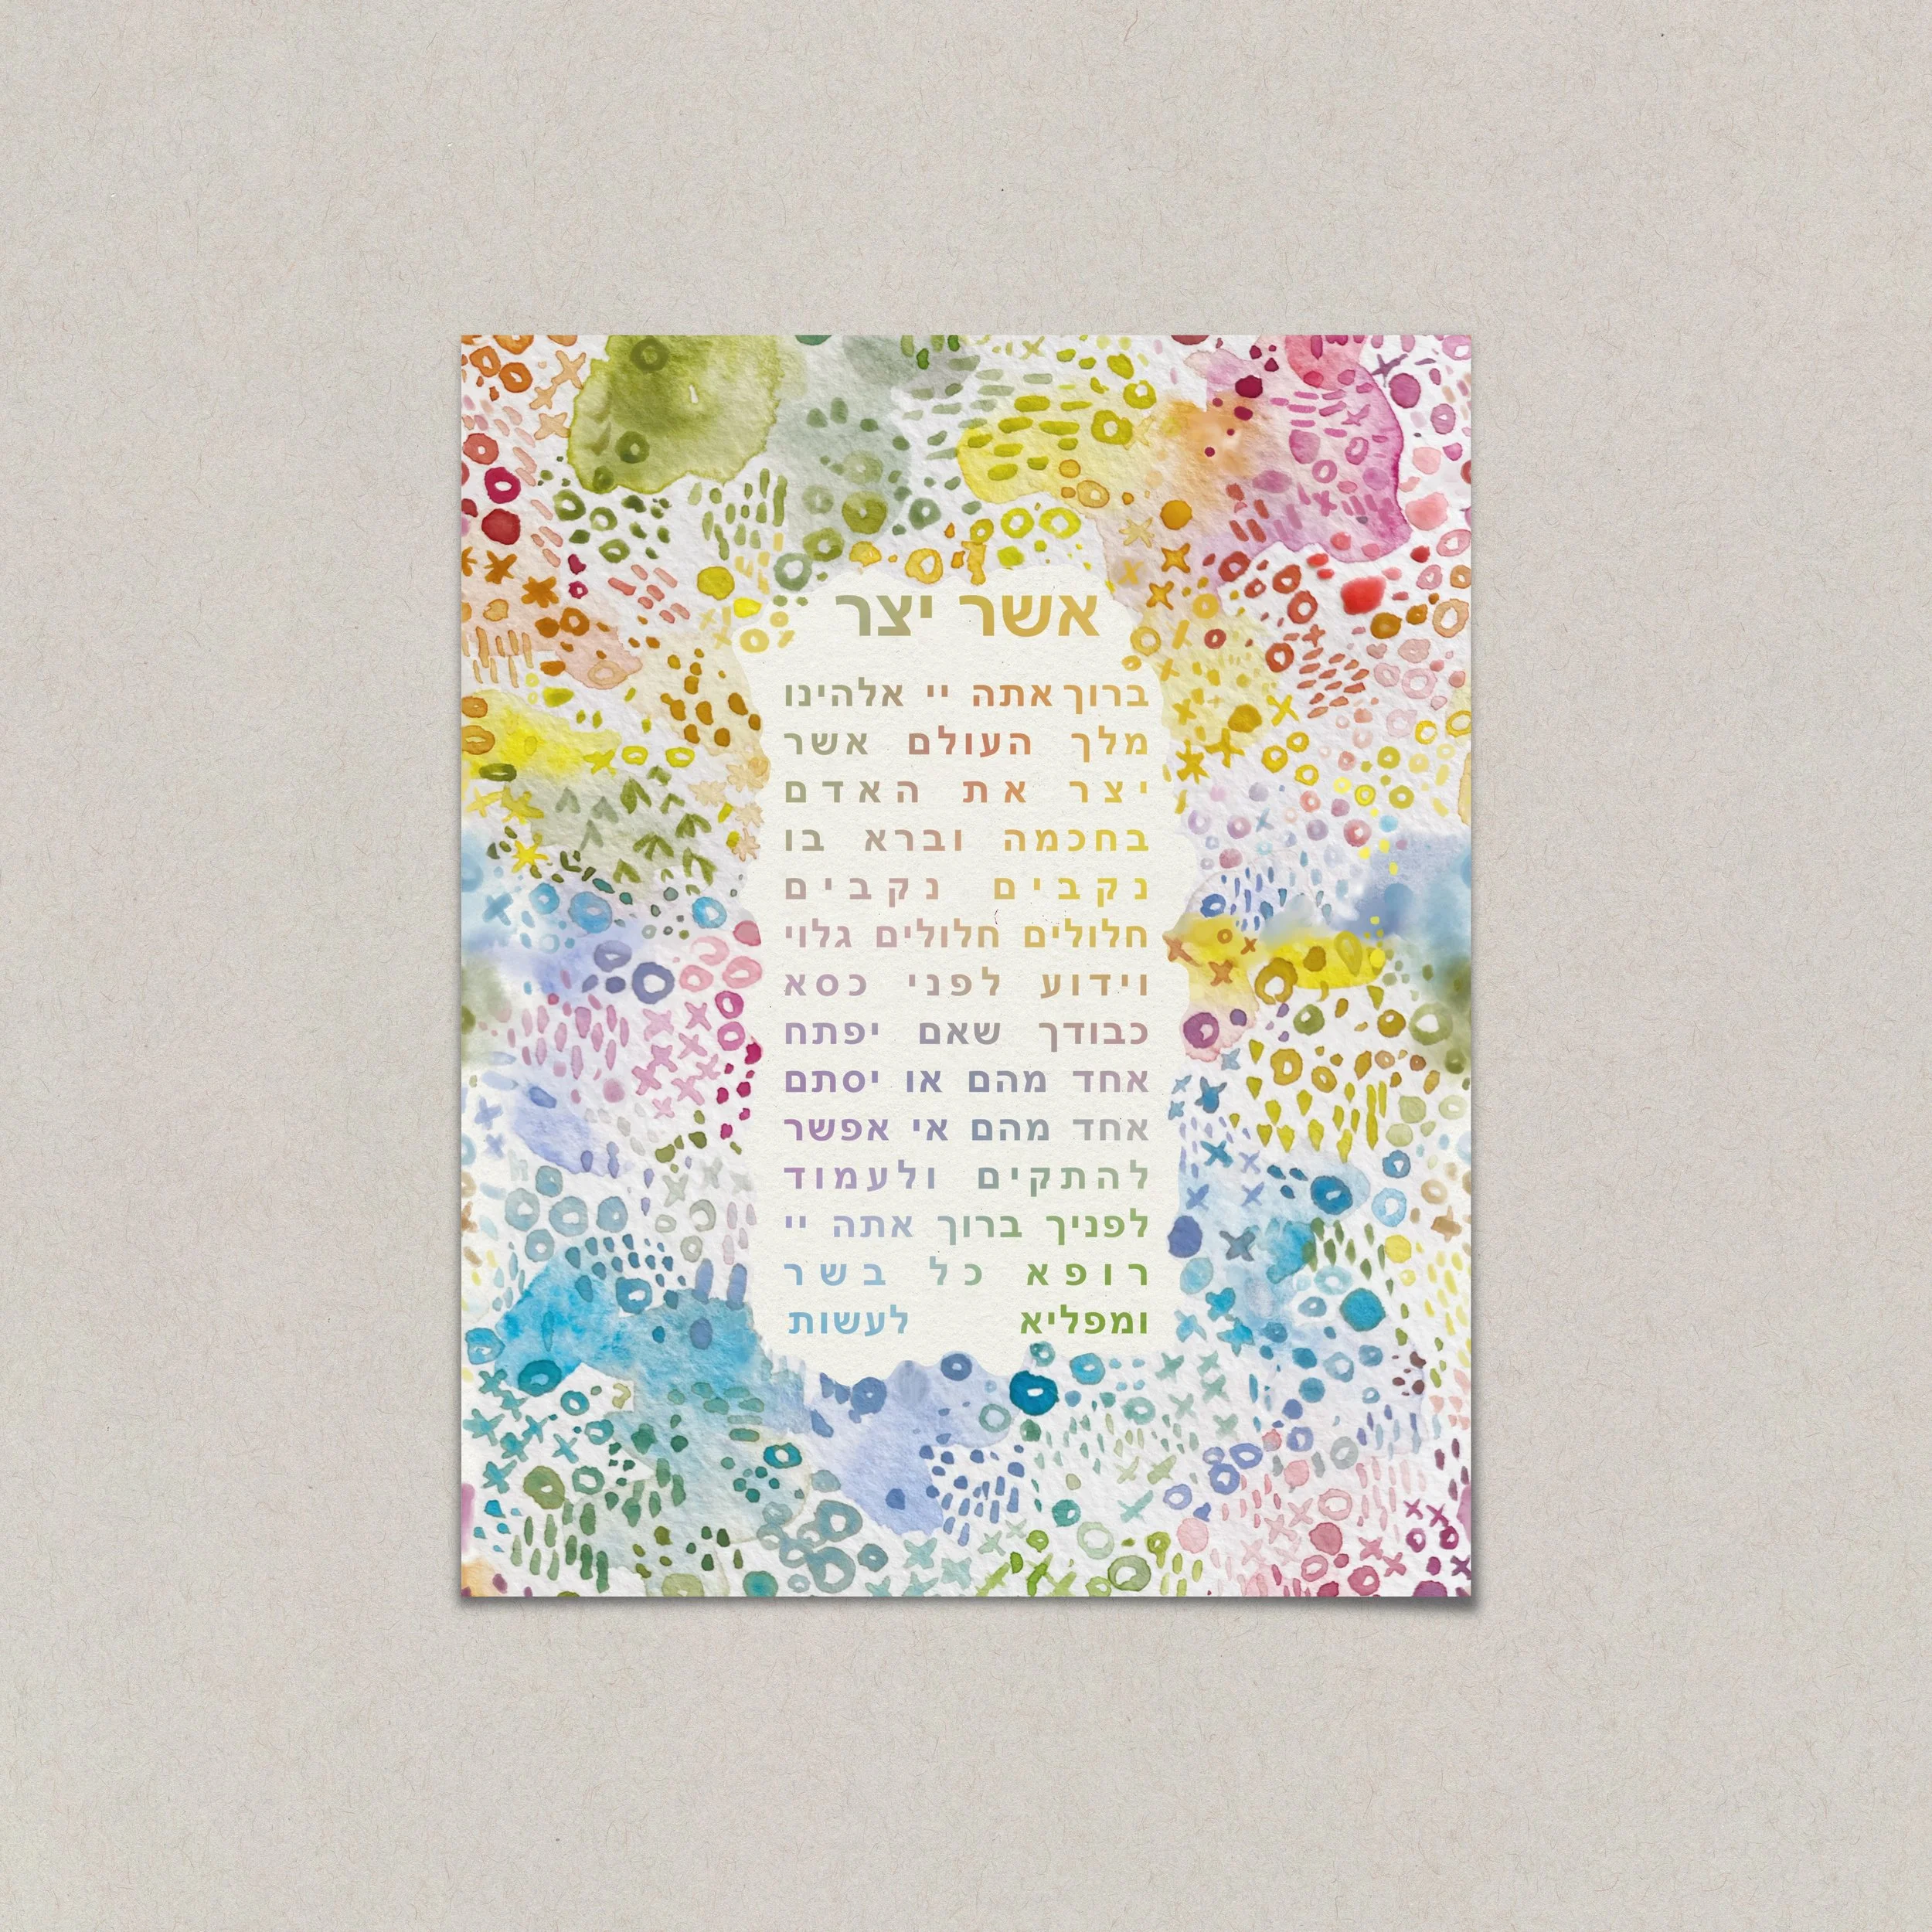 אשר יצר
ברוך אתה יי אלהינו
מלך העולם אשר
יצר את האדם
בחכמה וברא בו
נקבים נקבים
חלולים חלולים גלוי
וידוע לפני כסא
כבודך שאם יפתח
אחד מהם או יסתם
אחד מהם אי אפשר
להתקים ולעמוד
לפניך ברוך אתה יי
רופא כל בשר
ומפליא לעשות